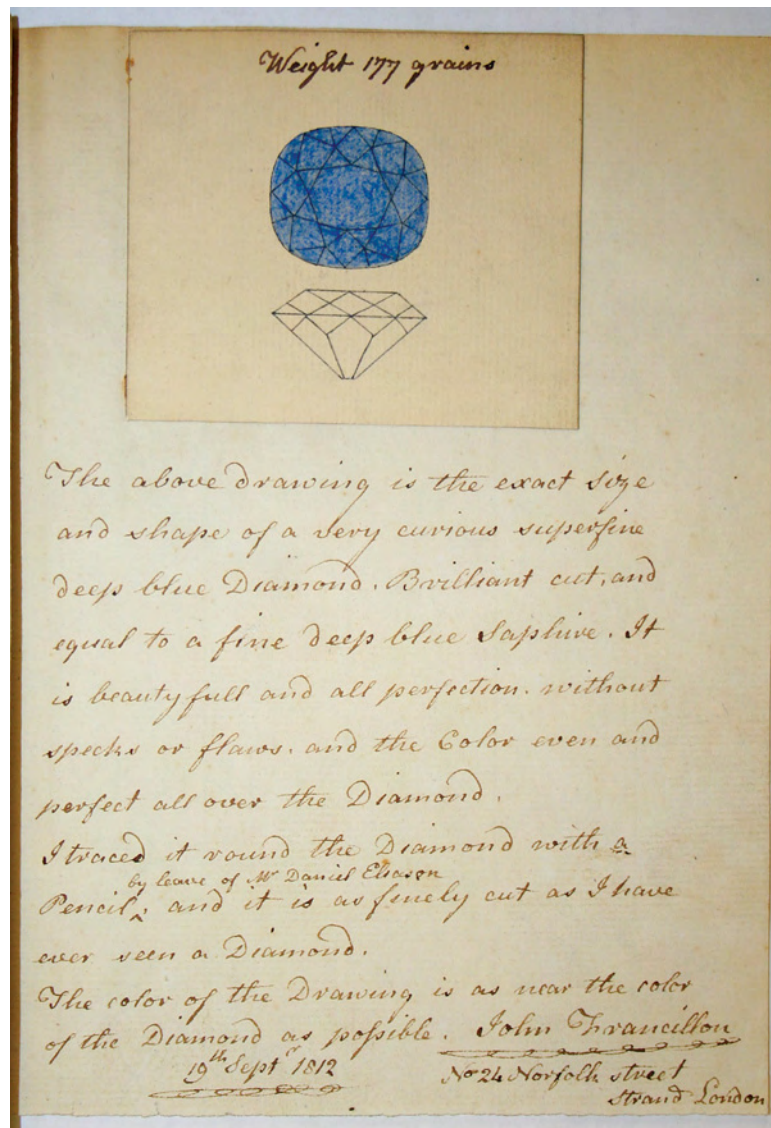 Weight 177 grains
The above drawing is the exact size
and shape of a very curious superfine
deep blue Diamond. Brilliant cut, and
equal to a fine deep blue Saphire. It
is beautyfull and all perfection. without
specks or flaws. and the Color even and
perfect all over the Diamond.
I traced it round the Diamond with a
by leave of Mr Daniel Eliason
Pencil ‸, and it is as finely cut as I have
ever seen a Diamond.
The color of the Drawing is as near the color
of the Diamond as poſsible. John Francillon
19th Septr 1812 No 24 Norfolk street
Strand London